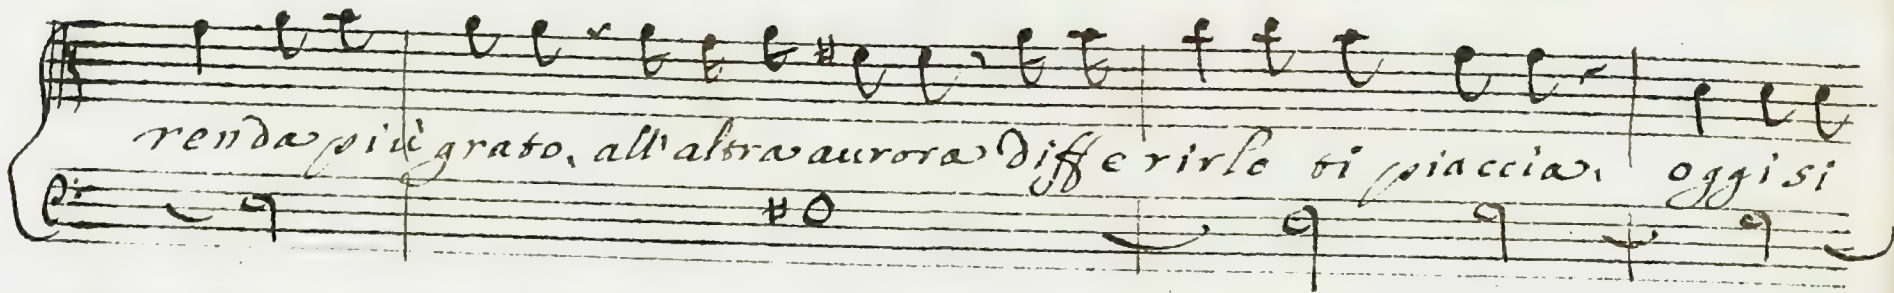 renda più grato, all'altra aurora differirle ti piaccia. oggi si